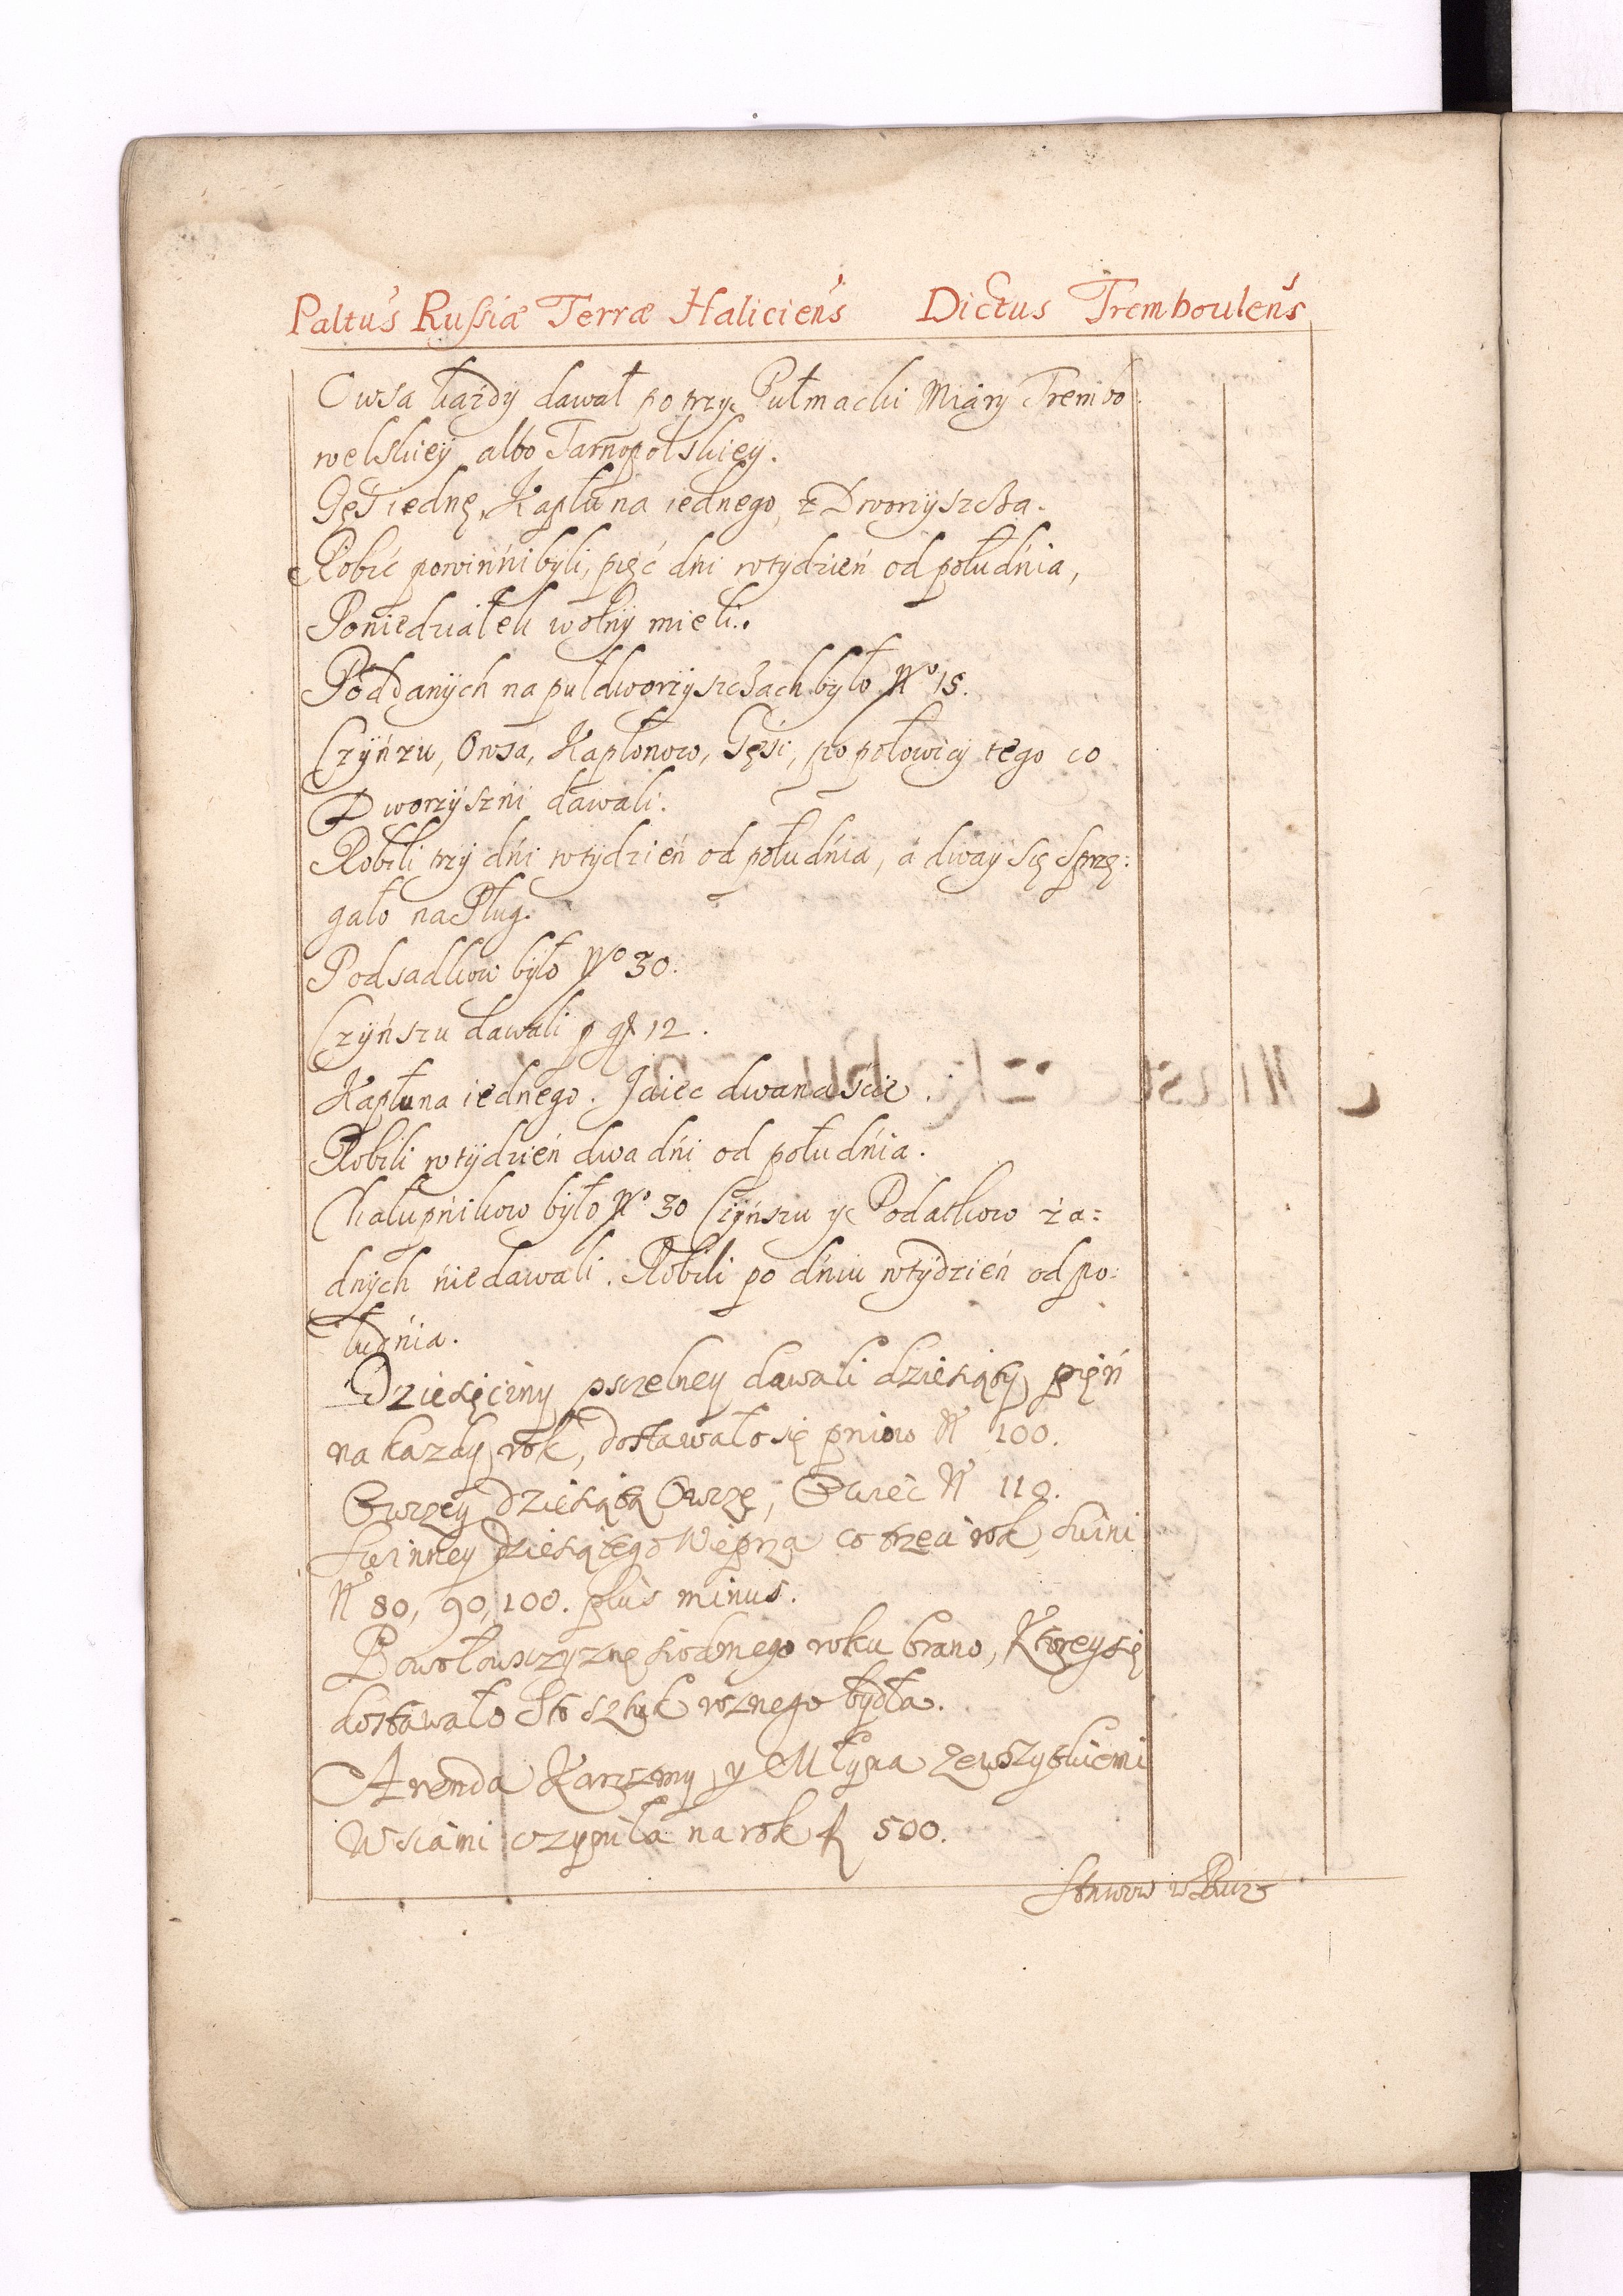 Paltus Russiæ Terræ Haliciens Dictus Tremboulens
Owsa każdy dawał po trzy Pułmacki Miary Trembo
welskiey albo Tarnopolskiey.
Gęś iednę, Kapłuna iednego, z Dworzyszcza.
Robić powinni byli, pięć dni w tydzień od południa,
Poniedziałek wolny mieli.
Poddanych na puł dworzyszczach było No 15.
Czyńzu, Owsa, Kapłonow, Gęśi, po połowicy tego co
Dworzyszni dawali.
Robili trzy dni w tydzień od południa, a dway się sprzę:
gało na Pług.
Podsadkow było No 30.
Czyńszu dawali p gr 12.
Kapłuna iednego. Jaiec dwanaście.
Robili w tydzień dwa dni od południa.
Chałupnikow było No 30 Czyńszu y Podatkow ża=
dnych niedawali. Robili po dniu w tydzień od po:
łudnia.
Dziesięciny pszelney dawali dziesiąty pień
na kazdy rok, dostawało się pniow No 100.
Owczey dziesiątą Owcę, Owiec No 110.
Swinney dziesiątego Wieprza co trzeci rok, swini
No 80, 90, 100. plus minus.
Powołowszczyznę siodmego roku brano, Ktorey się
dostawało Sto sztuk roznego bydła.
Arenda Karczmy y Młyna ze wszytkiemi
Wsiami czyniła na rok f 500.